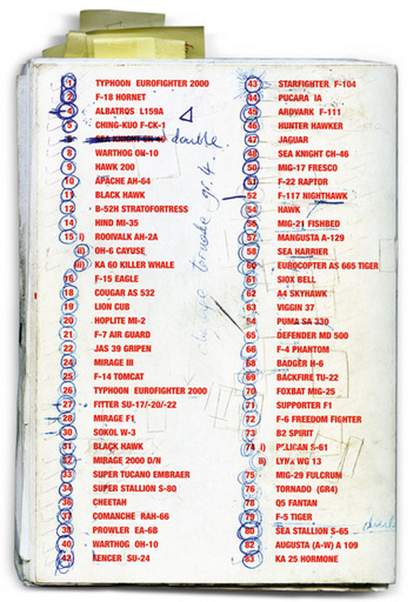 1 TYPHOON EUROFIGHTER 2000
2 F-18 HORNET
5 ALBATROS L159A
6 CHING-KUO F-CK-1
SEA KNIGHT CH-46 double
8 WARTHOG OW-10
9 HAWK 200
10 APACHE AH-64
11 BLACK HAWK
12 B-52H STRATOFORTRESS
14 HIND MI-35
15 i) ROOIVALK AH-2A
ii) OH-6 CAYUSE
iii) KA 60 KILLER WHALE
16 F-15 EAGLE
18 COUGAR AS 532
19 LION CUB
20 HOPLITE MI-2
21 F-7 AIR GUARD
22 JAS 39 GRIPEN
24 MIRAGE III
25 F-14 TOMCAT
26 TYPHOON EUROFIGHTER 2000
27 FITTER SU-17/-20/-22
28 MIRAGE F1
30 SOKOL W-3
31 BLACK HAWK
32 MIRAGE 2000 D/N
33 SUPER TUCANO EMBRAER
34 SUPER STALLION S-80
36 CHEETAH
37 COMANCHE RAH-66
38 PROWLER EA-6B
40 WARTHOG OH-10
42 FENCER SU-24
tornado gr.4.
43 STARFIGHTER F-104
44 PUCARA IA
45 ARDVARK F-111
46 HUNTER HAWKER
47 JAGUAR
48 SEA KNIGHT CH-46
50 MIG-17 FRESCO
51 F-22 RAPTOR
52 F-117 NIGHTHAWK
54 HAWK
56 MIG-21 FISHBED
57 MANGUSTA A-129
58 SEA HARRIER
60 EUROCOPTER AS 665 TIGER
61 SIOX BELL
62 A4 SKYHAWK
63 VIGGEN 37
64 PUMA SA 330
65 DEFENDER MD 500
66 F-4 PHANTOM
68 BADGER H-6
69 BACKFIRE TU-22
70 FOXBAT MIG-25
71 SUPPORTER F1
72 F-6 FREEDOM FIGHTER
73 B2 SPIRIT
74 i) PELICAN S-61
ii) LYNX WG 13
75 MIG-29 FULCRUM
76 TORNADO (GR4)
78 Q5 FANTAN
79 F-5 TIGER
80 SEA STALLION S-65
82 AUGUSTA (A-W) A 109
83 KA 25 HORMONE